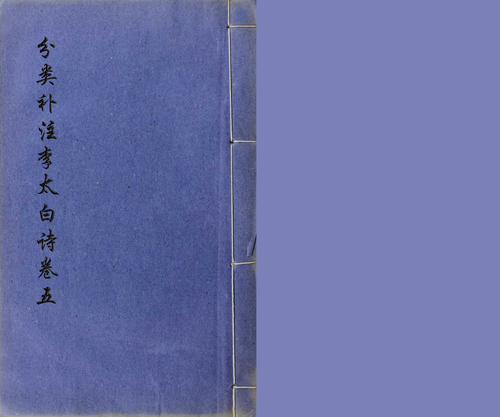 分类补注李太白诗卷五